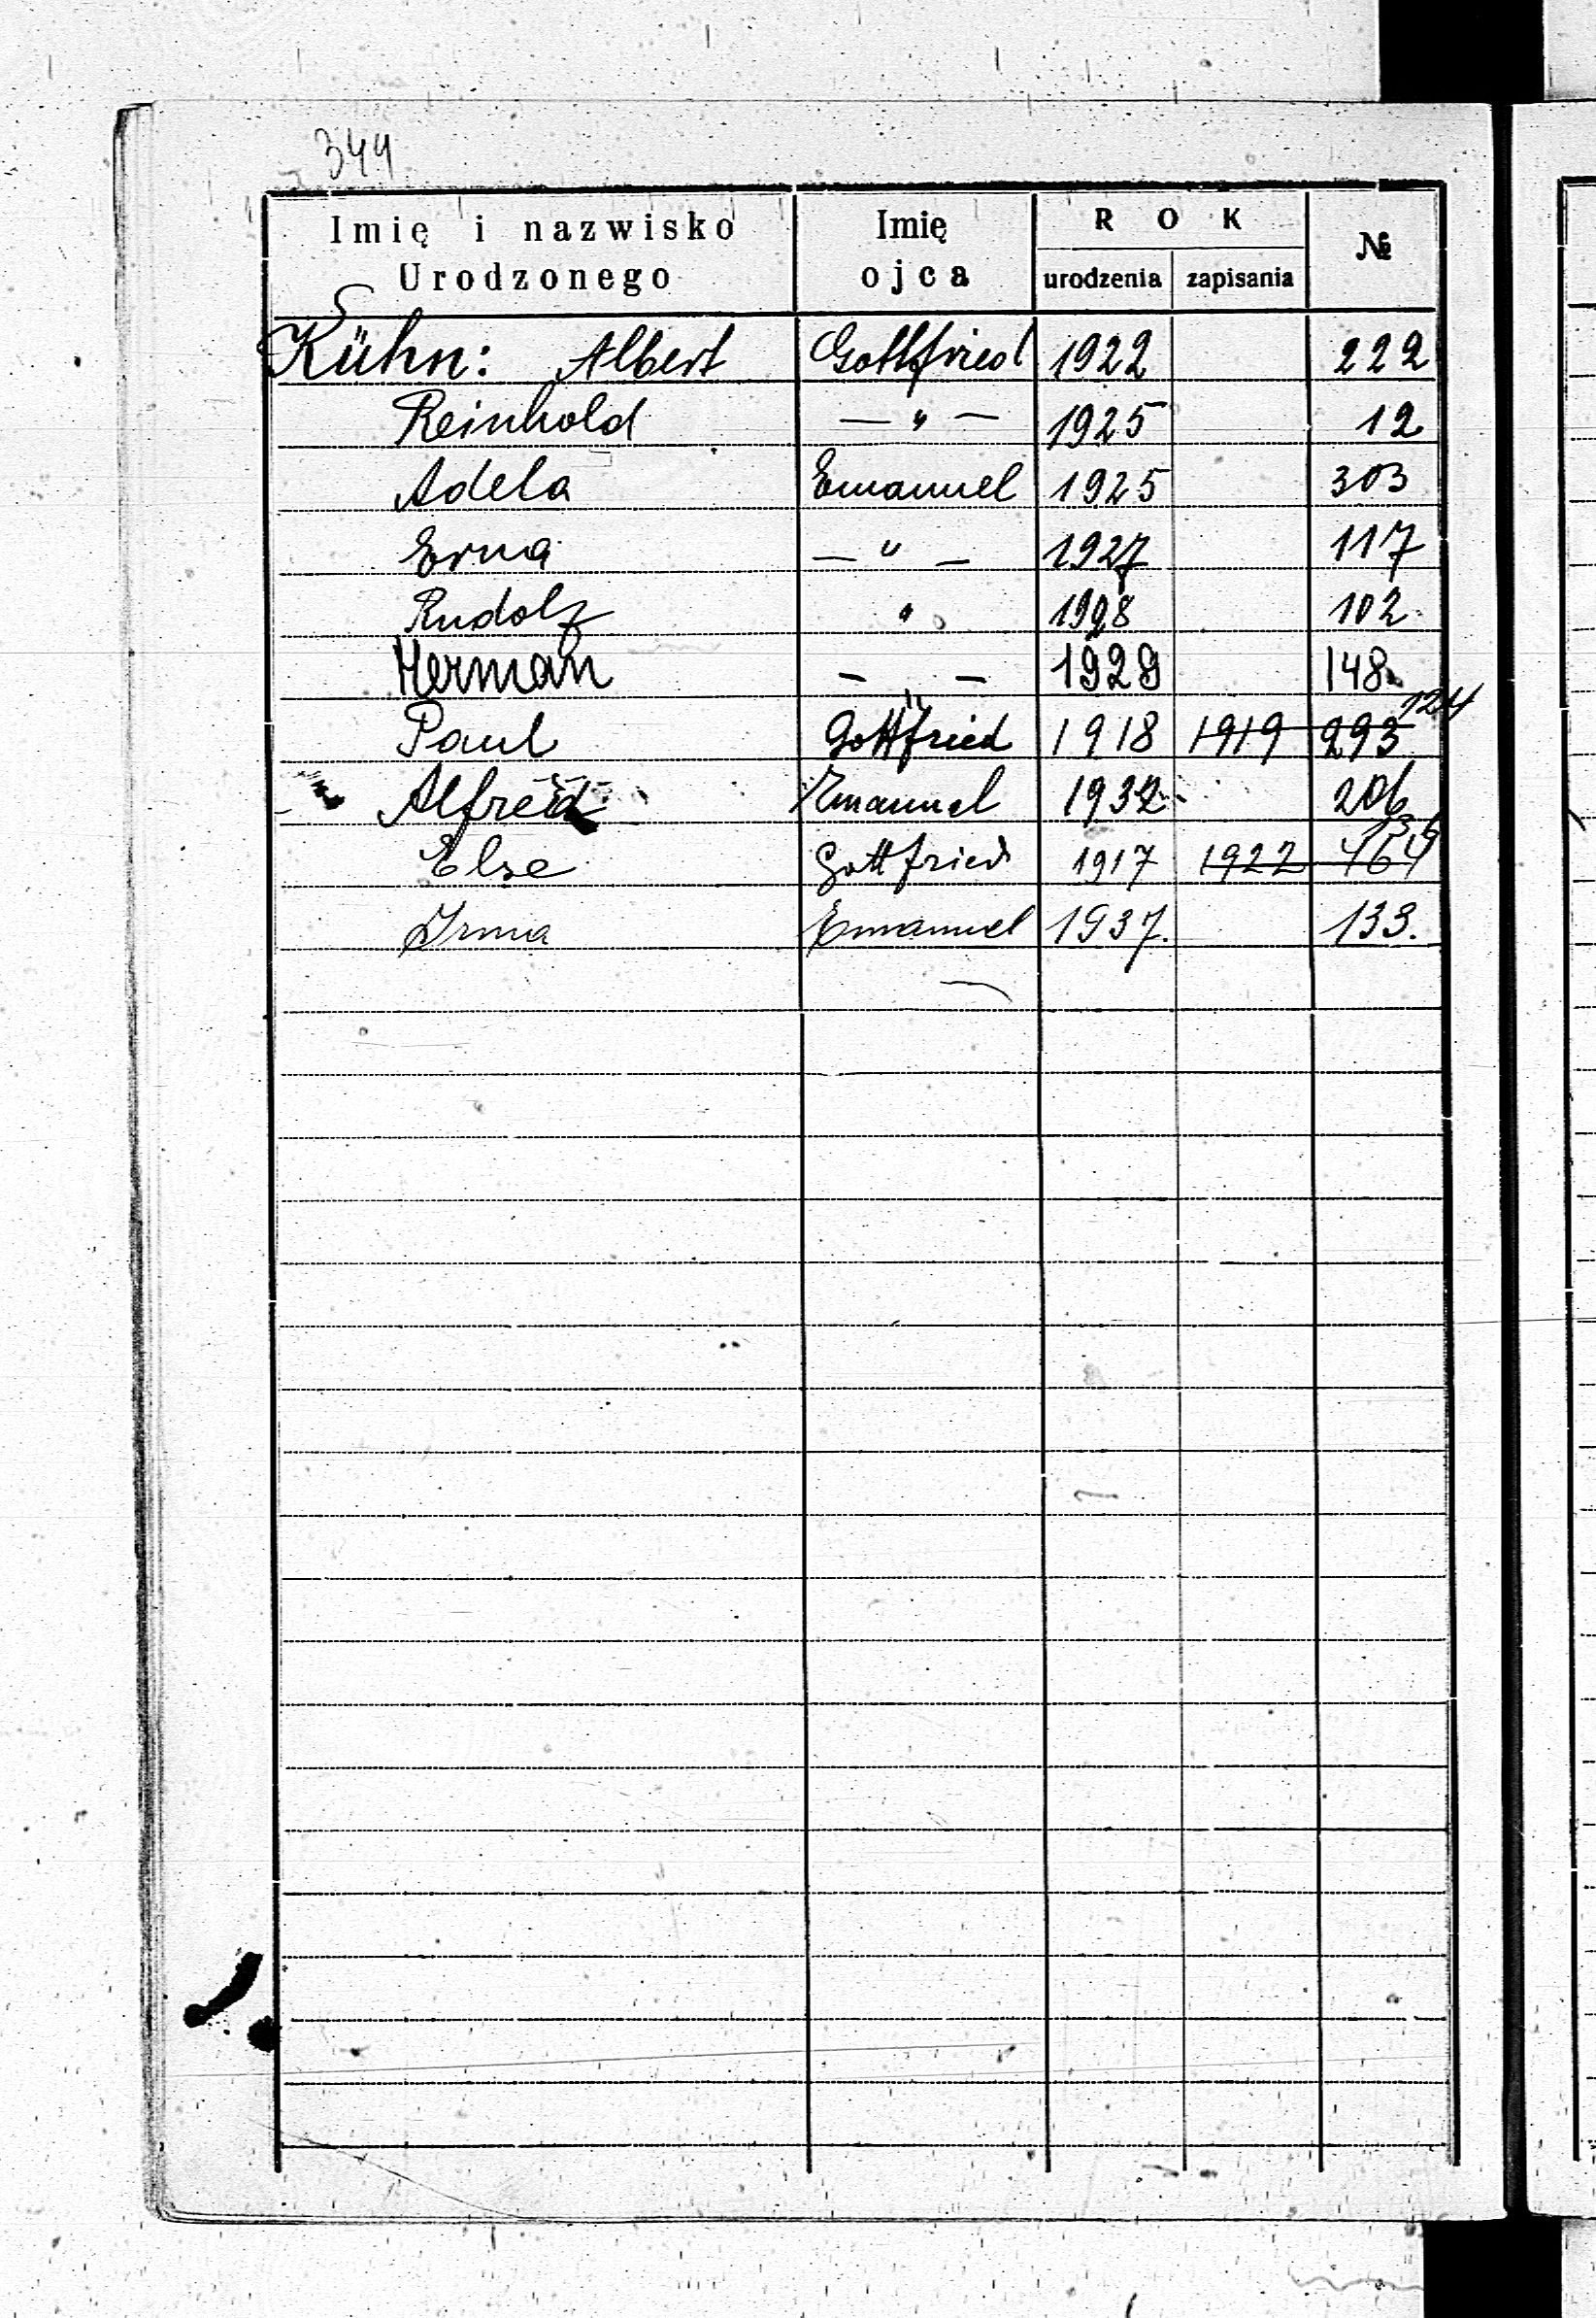 344
Imię i nazwisko Urodzonego Imię ojca ROK urodzenia zapisania №
Kühn: Albert Gottfried 1922 222
Reinhold — " — 1925 12
Adela Emanuel 1925 303
Erna — " — 1927 117
Rudolf " 1928 102
Herman — " — 1929 148
Paul Gottfried 1918 1919 293 124
Alfred Emanuel 1932 206
Else Gottfried 1917 1922 464
Irma Emanuel 1937. 133.